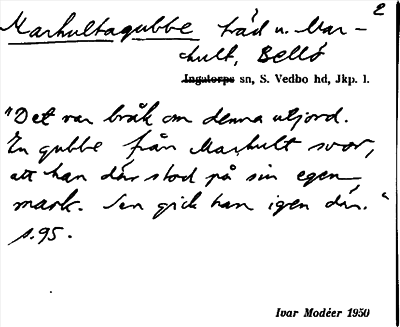 2
Marhultagubbe träd u. Mar-
hult, Bellö
Ingatorps sn, S. Vedbo hd, Jkp. l.
"Det var bråk om denna utjord.
En gubbe från Marhult svor,
att han där stod på sin egen
mark. Sen gick han igen där."
s.95.
Ivar Modéer 1950